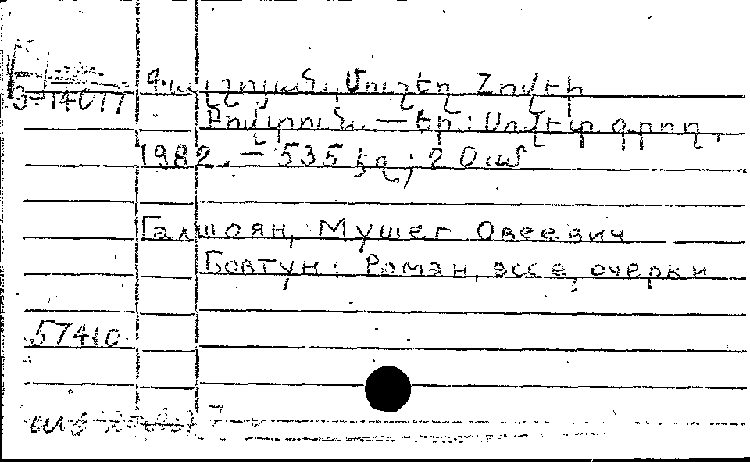 Գալշոյան, Մուշեղ Հովեի
Յ-14017
Բովտուն. — Եր.: Սովետ. գրող,
1982. — 535 էջ; 20 սմ
Галшоян, Мушег Овеевич
Бовтун: Роман, эссе, очерки
57410